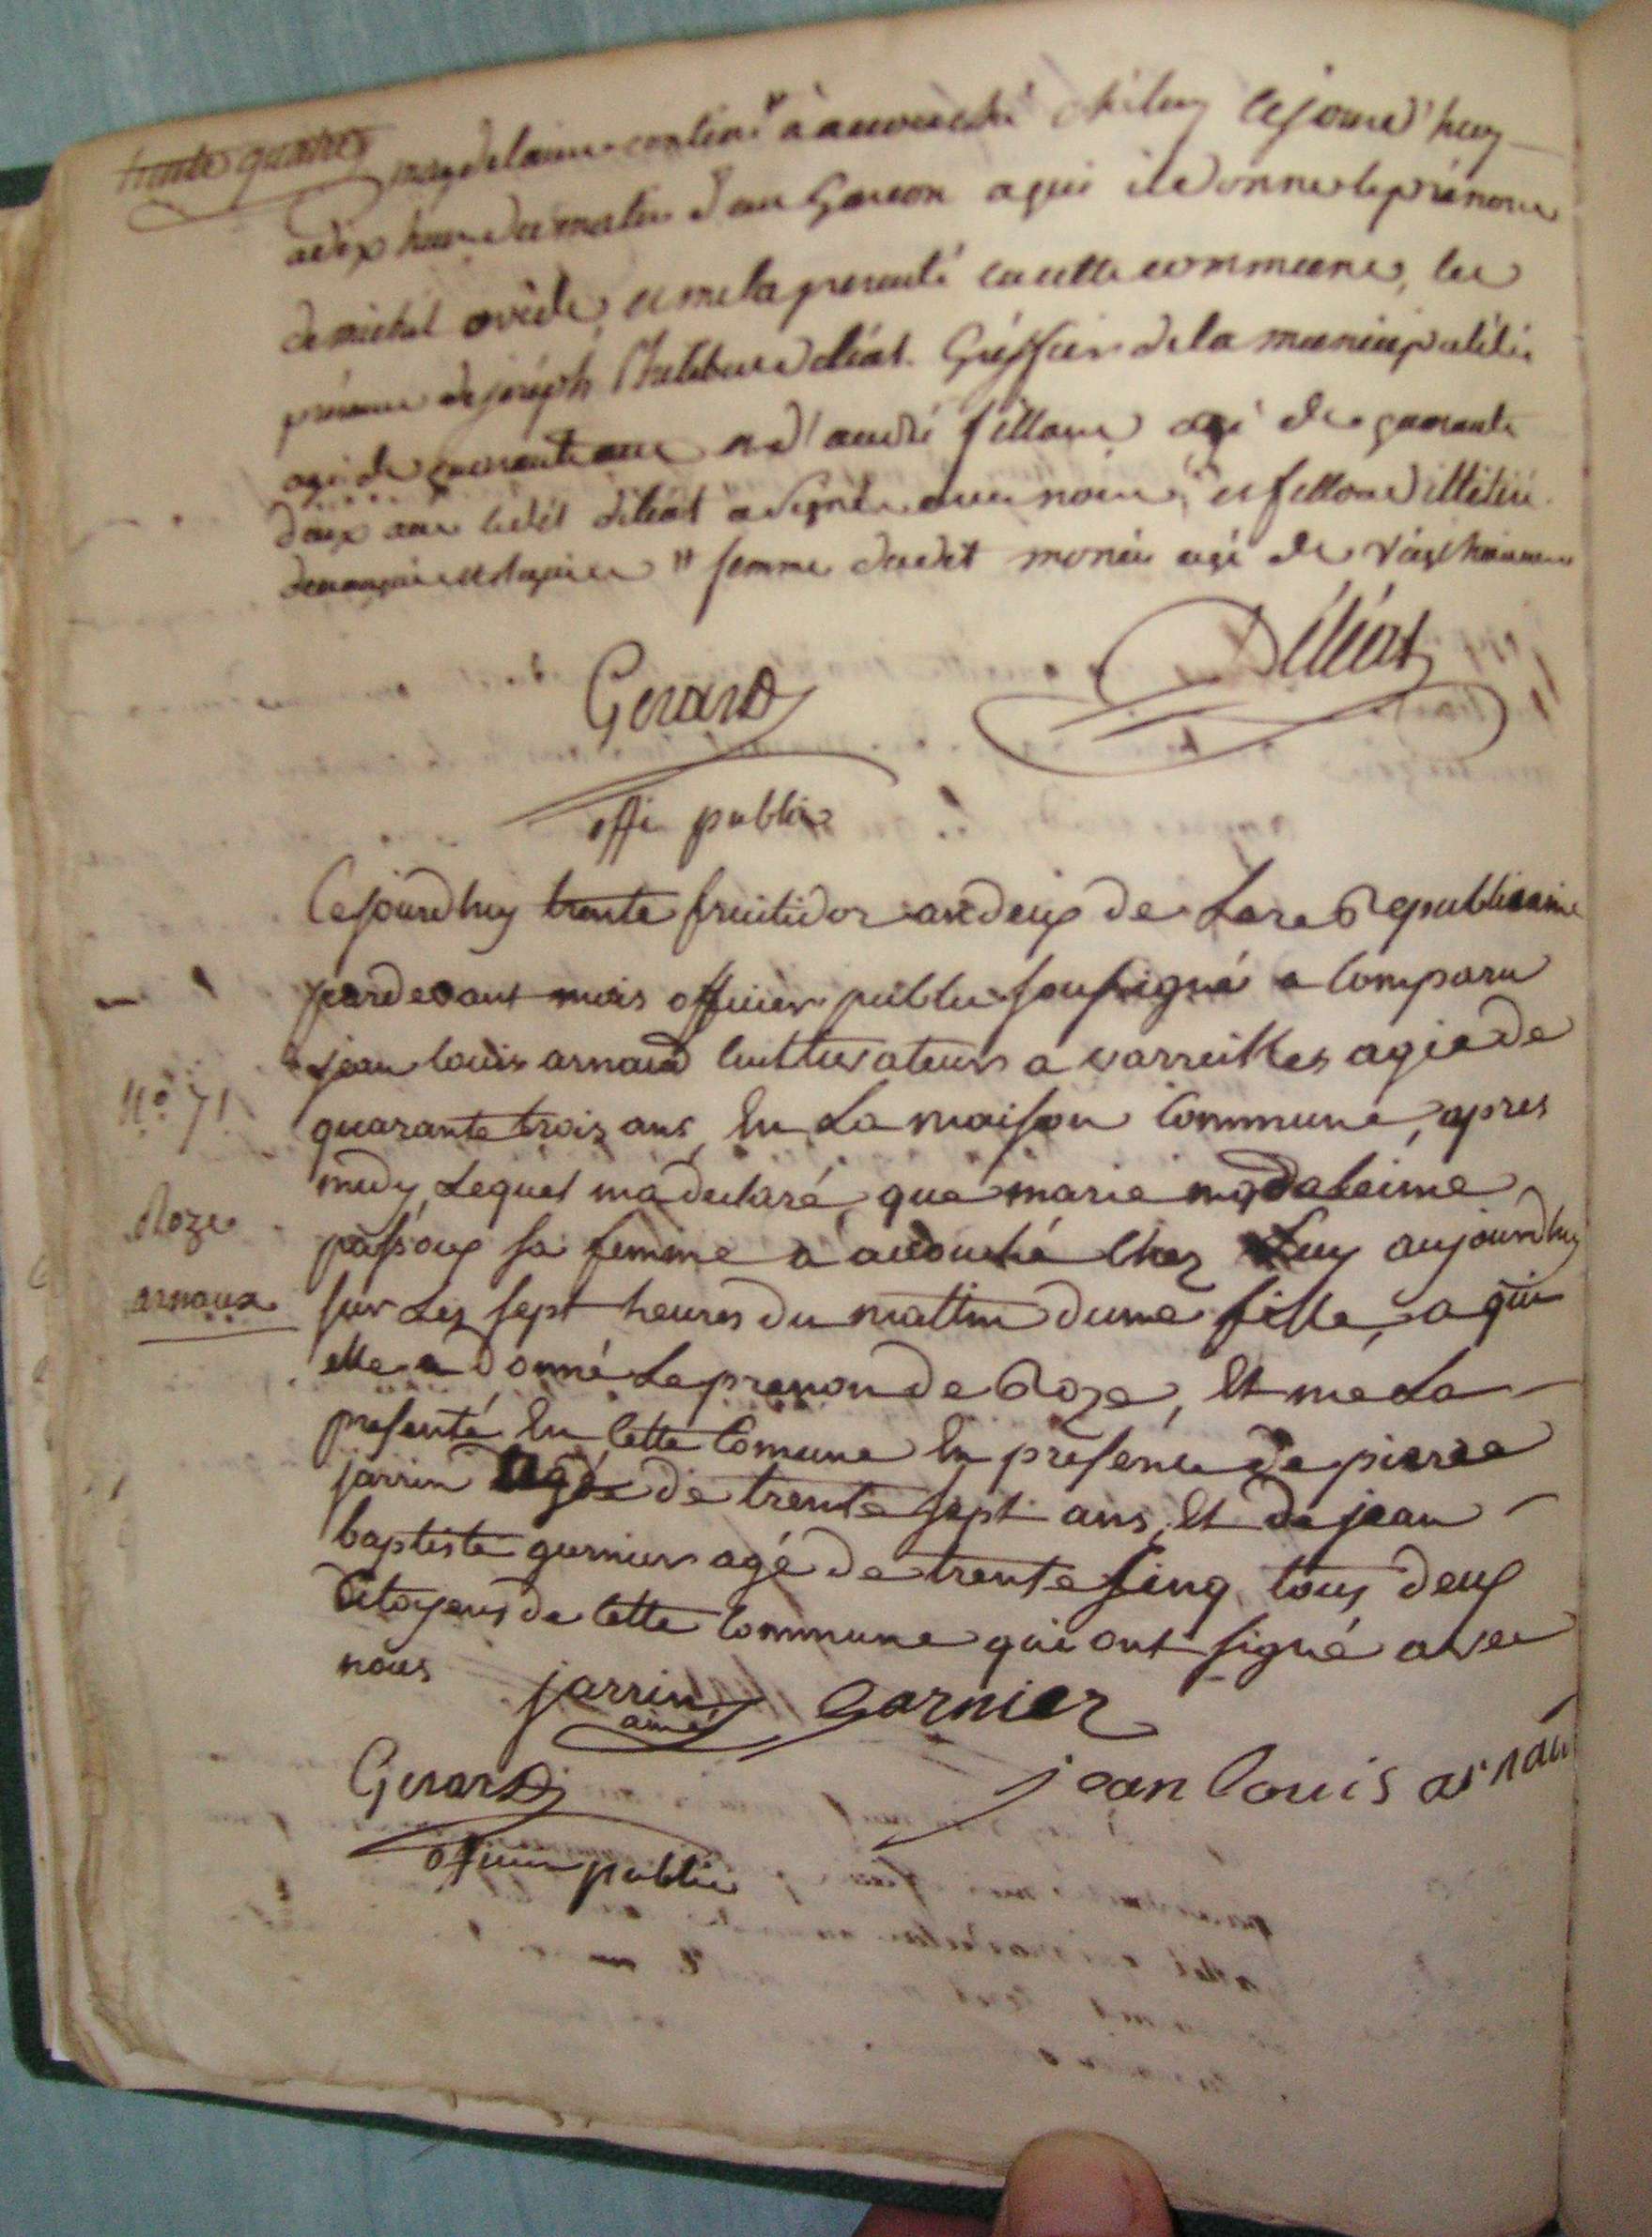 trente quatre
magdelaine contin " a accouché chés luy cejourd'huy
a dix heure du matin d'un Garcon a qui il a donné le prénom
de michel ovide, et me la presenté en cette commune, en
présence de joseph déléat. Gréffier de la municipalité
agé de quarante ans et d'andré fillion agé de quarante
deux ans ledit déléat a signé avec nous, et fillion illitéré
" femme dudit monié agé de vingt
Déléat
Gerard
offi public
Cejourdhuy trente fruitidor an deux de Lere Republicaine
pardevant mois officier public soussigné a Comparu
jean louis arnaud Cultivateur a varreilles agée de
quarante trois ans, En La maison Commune, apres
midy, Lequel ma declaré que marie magdaleine
passoux sa femme a acouché Chez Luy aujourdhuy
sur Les sept heures du mattin dune fille, a qui
elle a donné Le prenon de Roze, Et me La
presenté En Cette Comune En presence de pierre
jarrin agée de trente sept ans, Et de jean
baptiste garnier agé de trente sinq, tous deux
Citoyens de Cette Commune qui ont signé avec
nous
N.º 71
Roze
arnaux
jarrin
ainé
Garnier
Gerard
jean louis arnau
officier public